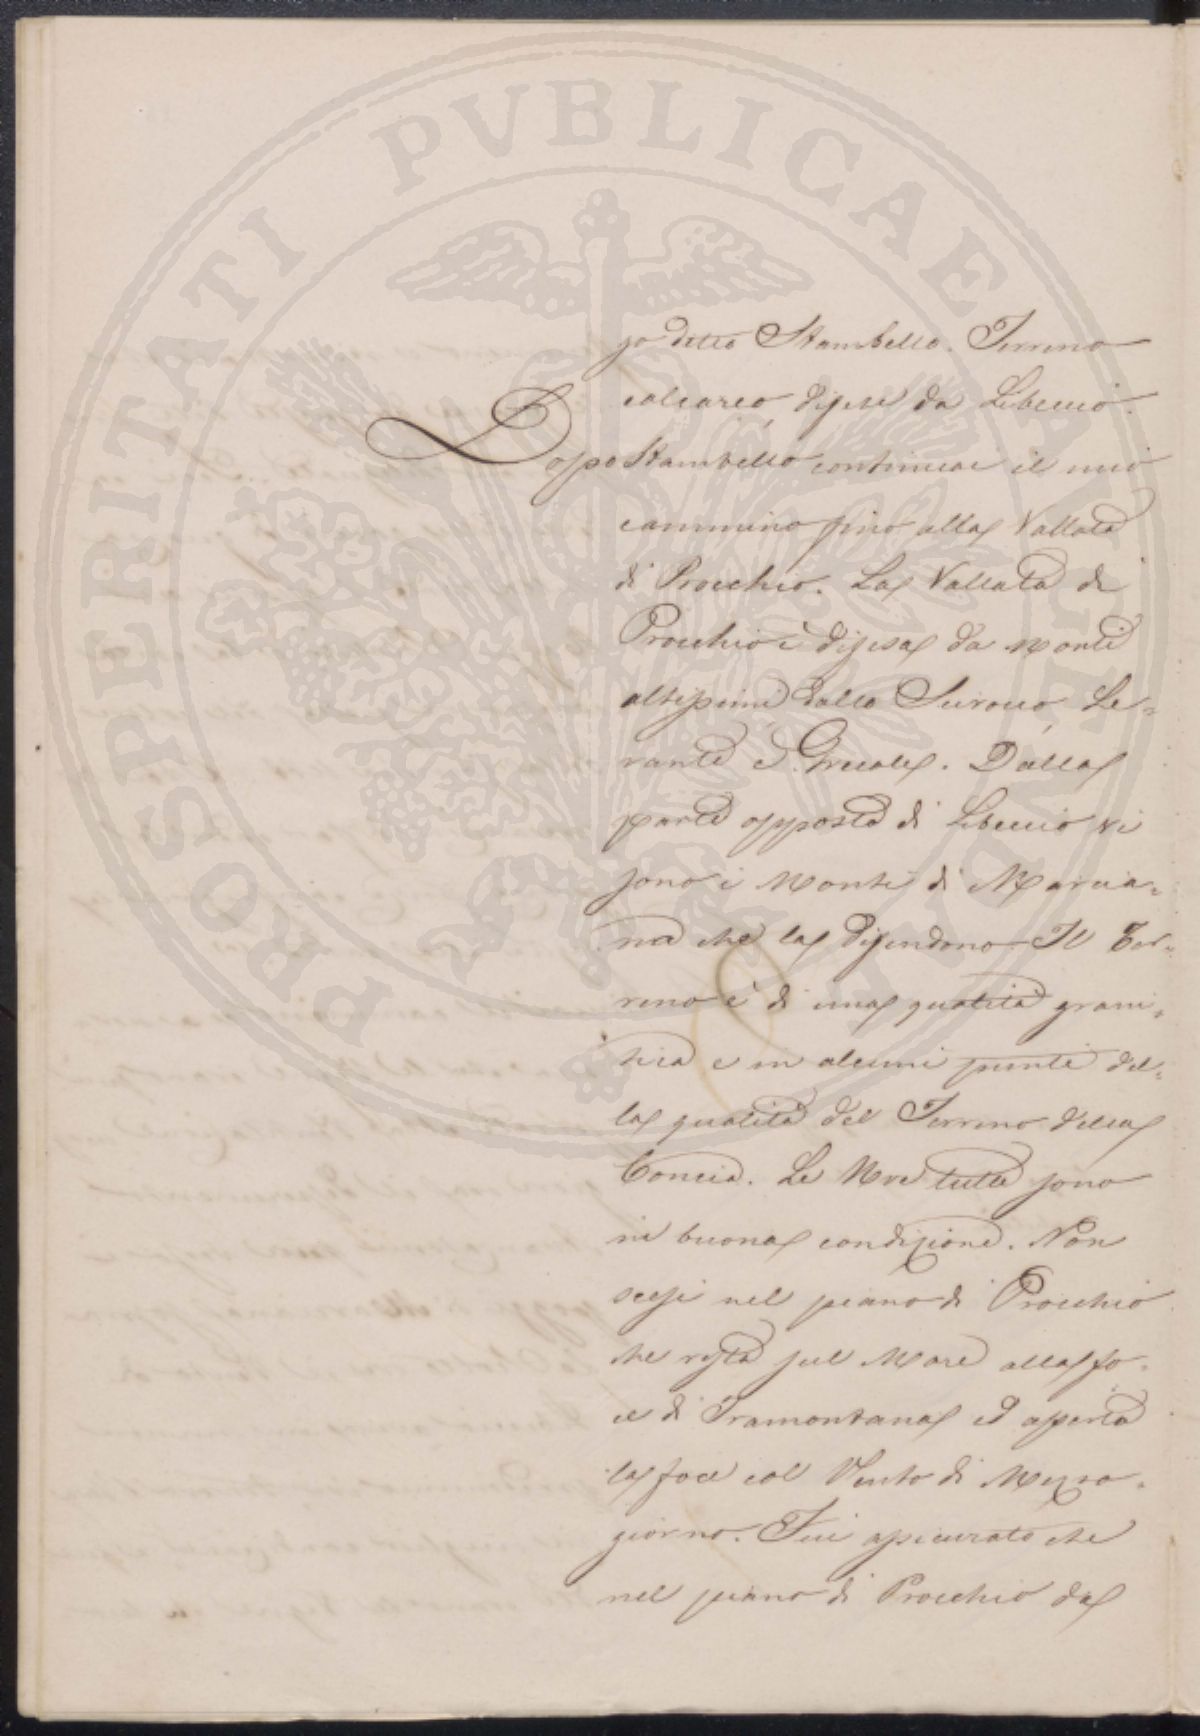 PROSPERITATI PVBLICAE AVGENDAE
so detto Stambello. Terreno
calcareo difese da Libeccio.
Dopo Stambello continuai il mio
cammino fino alla Vallata
di Procchio. La Vallata di
Procchio è difesa da monti
altissimi dallo Scirocco Le=
vante e Grecale. Dalla
parte opposta di Libeccio vi
sono i Monti di Marcia=
na che la difendono. Il Ter=
reno è di una qualità grani=
tica e in alcuni punti del=
la qualità del Terreno della
Concia. Le Uve tutte sono
in buona condizione. Non
scesi nel piano di Procchio
che resta sul Mare alla fo=
ce di Tramontana ed aperta
la foce col Vento di Mezzo=
giorno. Fui assicurato che
nel piano di Procchio da